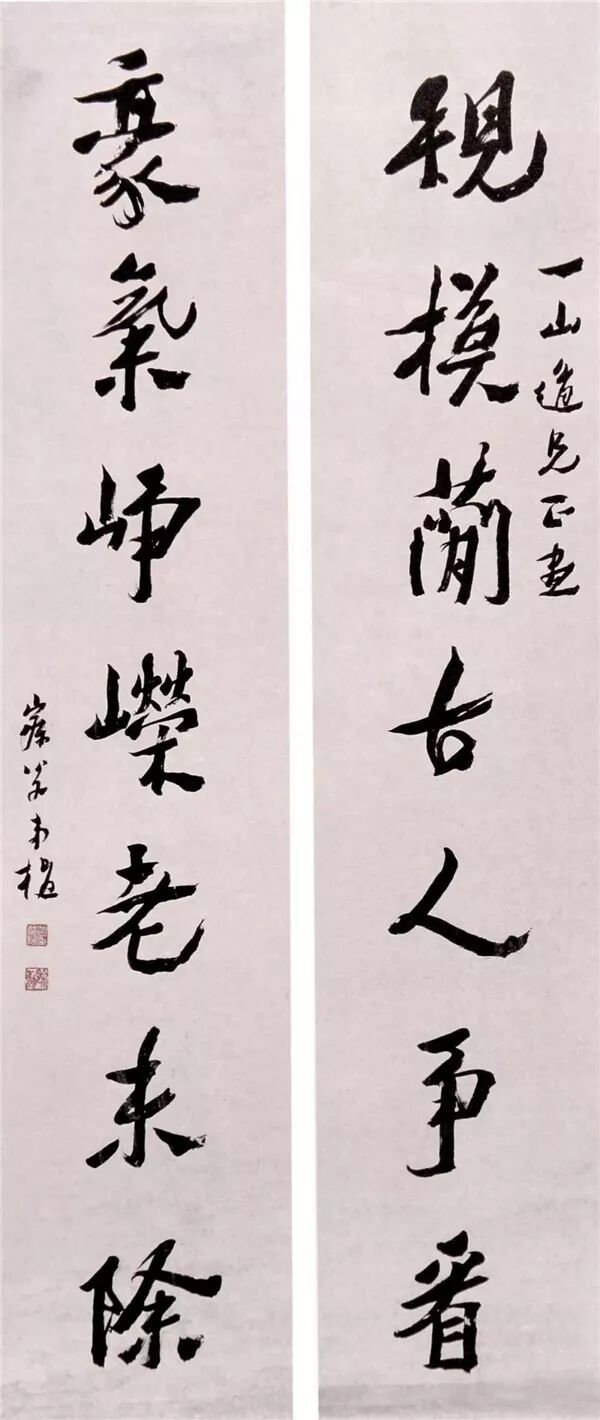 規模簡古人爭看
一山道兄正
豪氣崢嶸老未除
弟植